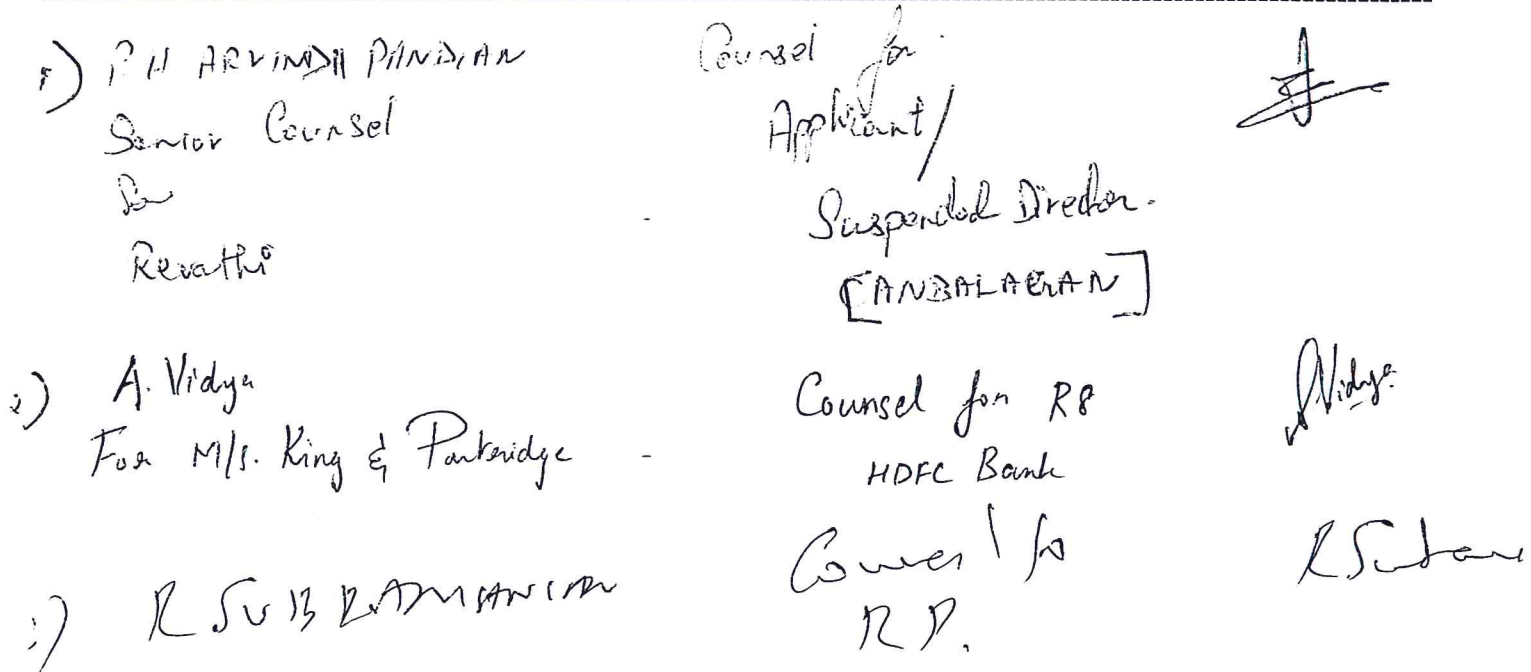 1) P H ARVINDH PANDIAN
Senior Counsel
for
Revathi
Counsel for
Applicant/
Suspended Director.
[ANBALAGAN]
2) A. Vidya
For M/s. King & Partridge
Counsel for R8
HDFC Bank
A Vidya
3) R SUBRAMANIAN
Counsel for
R P.